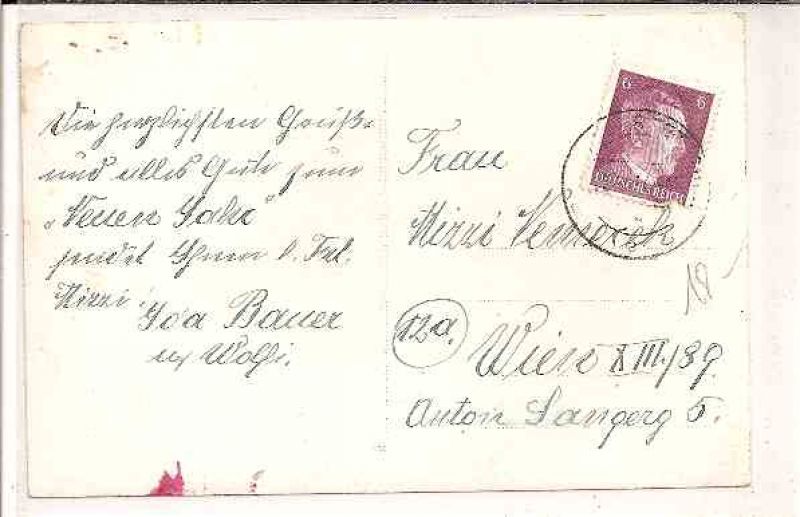 Die herzlichsten Grüße
und alles Gute zum
„Neuen Jahr“
sendet Ihnen l. Frl.
Mizzi!
Ida Bauer
u. Wolfi.
6 6
DEUTSCHES REICH
Frau
Mizzi
18
12a.
Wien XIII./89.
Anton Langerg 5.